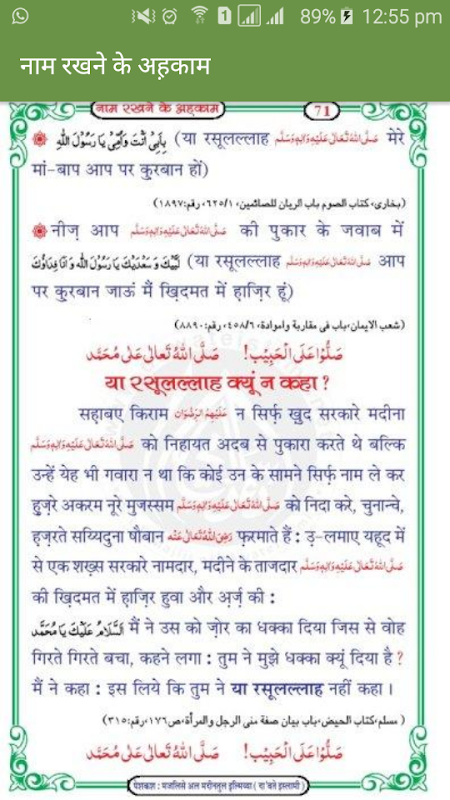 89% 12:55 pm
नाम रखने के अह़काम
नाम रखने के अह़काम 71
بِاَبِیْ اَنْتَ وَاُمِّیْ یَا رَسُوْلَ اللّٰہِ (या रसूलल्लाह صَلَّی اللّٰہُ تَعَالٰی عَلَیْہِ وَاٰلِہٖ وَسَلَّم मेरे
मां-बाप आप पर क़ुरबान हों)
(بخاری، کتاب الصوم باب الریان للصائمین، ۱/۶۲۵، رقم:۱۸۹۷)
नीज़ आप صَلَّی اللّٰہُ تَعَالٰی عَلَیْہِ وَاٰلِہٖ وَسَلَّم की पुकार के जवाब में
لَبَّیْكَ وَ سَعْدَیْكَ یَا رَسُوْلَ اللّٰہِ وَ اَنَا فِدَاؤُكَ (या रसूलल्लाह صَلَّی اللّٰہُ تَعَالٰی عَلَیْہِ وَاٰلِہٖ وَسَلَّم आप
पर क़ुरबान जाऊं मैं ख़िदमत में हाज़िर हूं)
(شعب الایمان، باب فی مقاربة وامواده، ۶/۴۵۸، رقم:۸۸۹۰)
صَلُّوْا عَلَی الْحَبِیْب! صَلَّی اللّٰہُ تَعَالٰی عَلٰی مُحَمَّد
या रसूलल्लाह क्यूं न कहा ?
सह़ाबए किराम عَلَیْہِمُ الرِّضْوَان न सिर्फ़ ख़ुद सरकारे मदीना
صَلَّی اللّٰہُ تَعَالٰی عَلَیْہِ وَاٰلِہٖ وَسَلَّم को निहायत अदब से पुकारा करते थे बल्कि
उन्हें येह भी गवारा न था कि कोई उन के सामने सिर्फ़ नाम ले कर
हुज़ूरे अकरम नूरे मुजस्सम صَلَّی اللّٰہُ تَعَالٰی عَلَیْہِ وَاٰلِہٖ وَسَلَّم को निदा करे, चुनान्चे,
ह़ज़रते सय्यिदुना षौबान رَضِیَ اللّٰہُ تَعَالٰی عَنْہ फ़रमाते हैं : उ़-लमाए यहूद में
से एक शख़्स सरकारे नामदार, मदीने के ताजदार صَلَّی اللّٰہُ تَعَالٰی عَلَیْہِ وَاٰلِہٖ وَسَلَّم
की ख़िदमत में हाज़िर हुवा और अ़र्ज़ की :
اَلسَّلَامُ عَلَیْكَ یَا مُحَمَّد मैं ने उस को ज़ोर का धक्का दिया जिस से वोह
गिरते गिरते बचा, कहने लगा : तुम ने मुझे धक्का क्यूं दिया है ?
मैं ने कहा : इस लिये कि तुम ने या रसूलल्लाह नहीं कहा ।
(مسلم، کتاب الحیض، باب بیان صفة منی الرجل والمرأة، ص۱۷۶، رقم:۳۱۵)
صَلُّوْا عَلَی الْحَبِیْب! صَلَّی اللّٰہُ تَعَالٰی عَلٰی مُحَمَّد
पेशकश : मजलिसे अल मदीनतुल इल्मिय्या ( दा'वते इस्लामी )